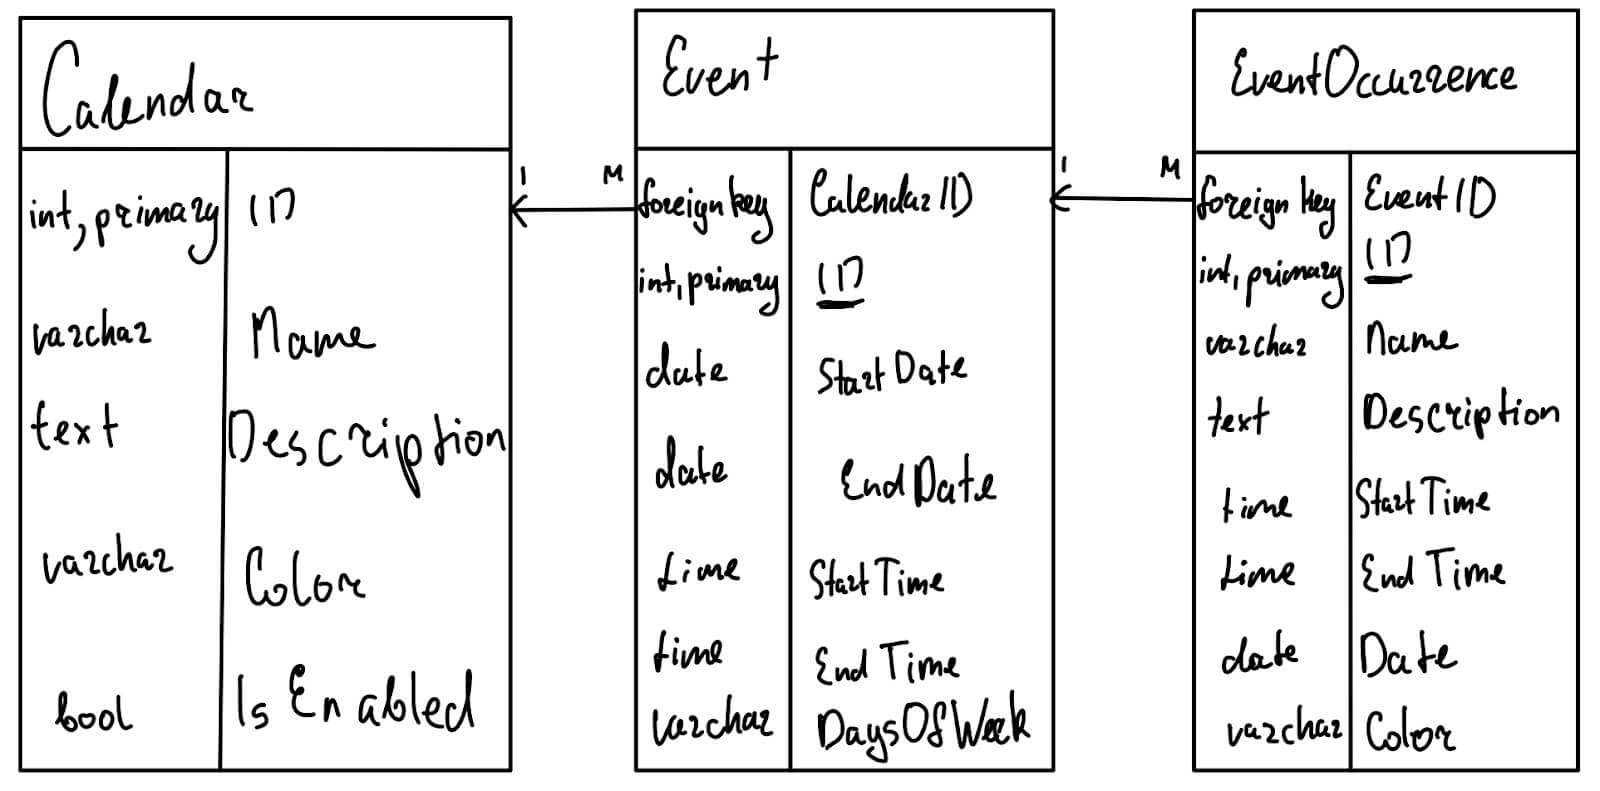 Calendar
int, primary ID
varchar Name
text Description
varchar Color
bool Is Enabled
1 M
Event
foreign key CalendarID
int, primary ID
date StartDate
date EndDate
time StartTime
time EndTime
varchar DaysOfWeek
1 M
EventOccurrence
foreign key EventID
int, primary ID
varchar Name
text Description
time StartTime
time EndTime
date Date
varchar Color